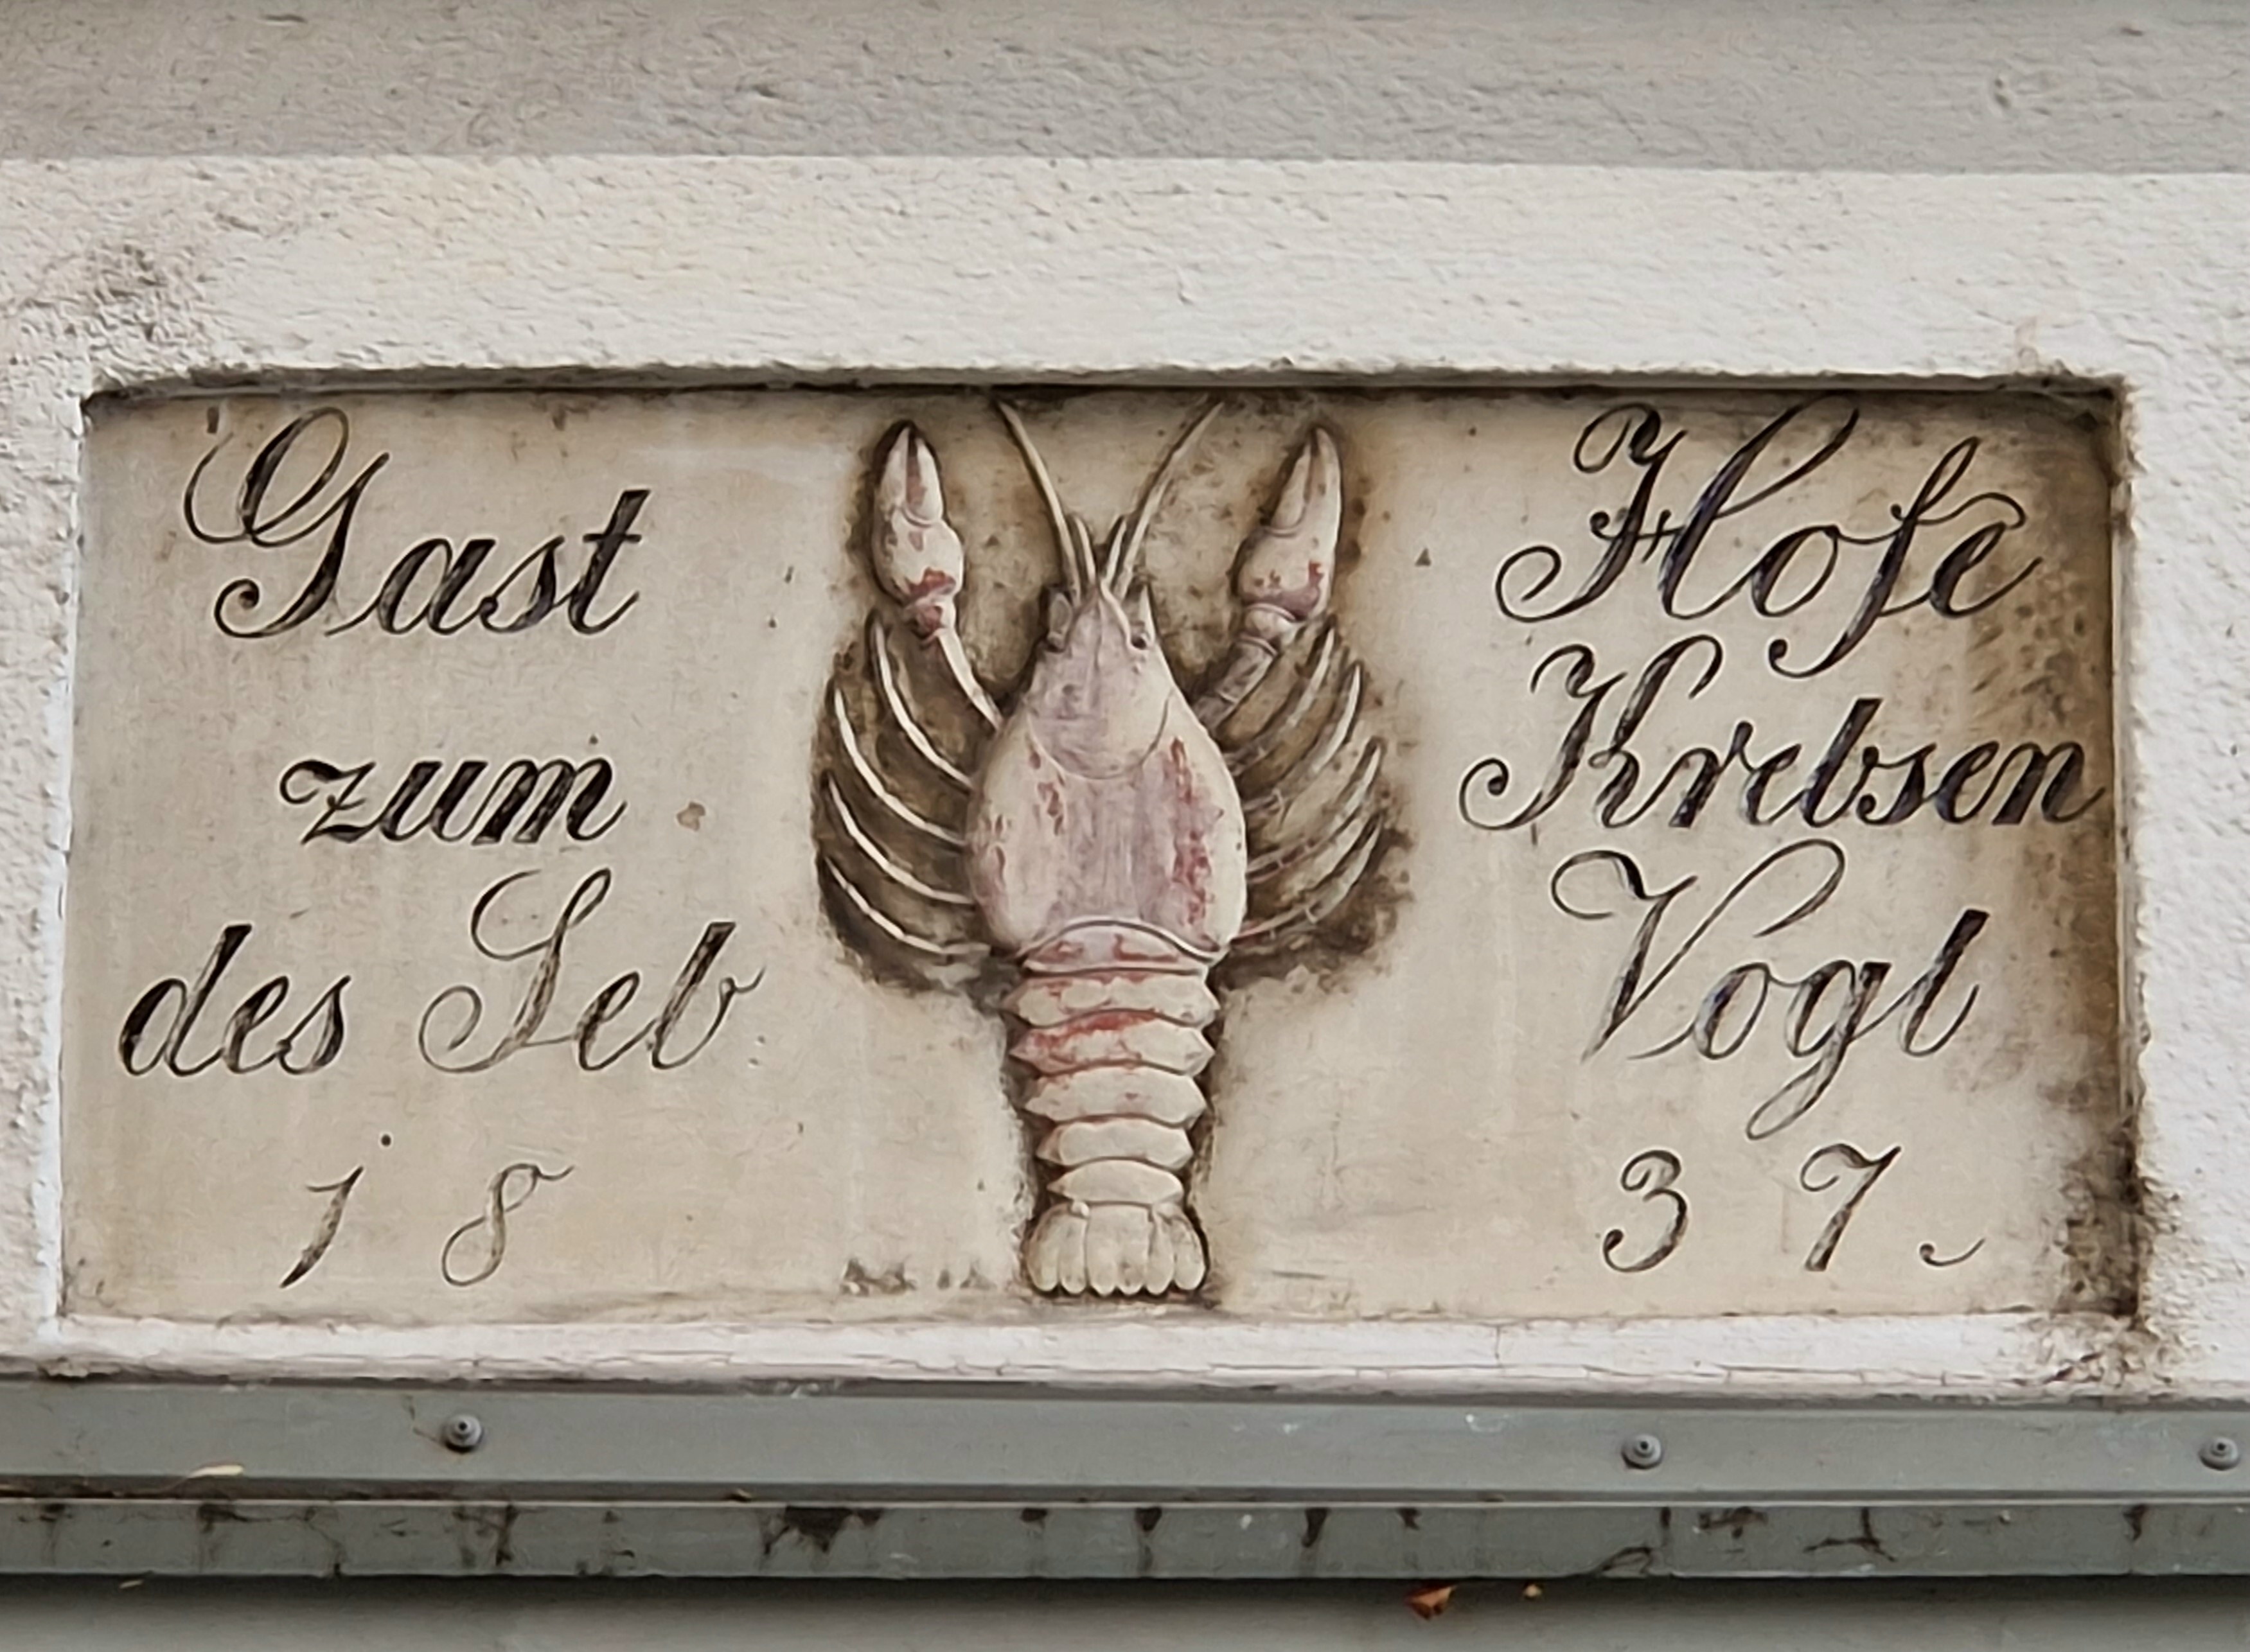 Gast Hofe
zum Krebsen
des Seb. Vogl
18 37.